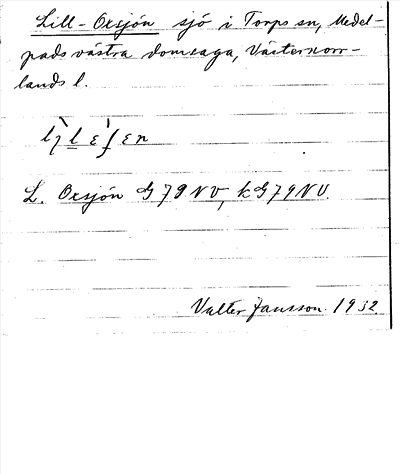 Lill-Oxsjön sjö i Torps sn, Medel-
pads västra domsaga, Västernorr-
lands l.
L. Oxsjön G 79 NV, k G 79 NV.
Valter Jansson 1932